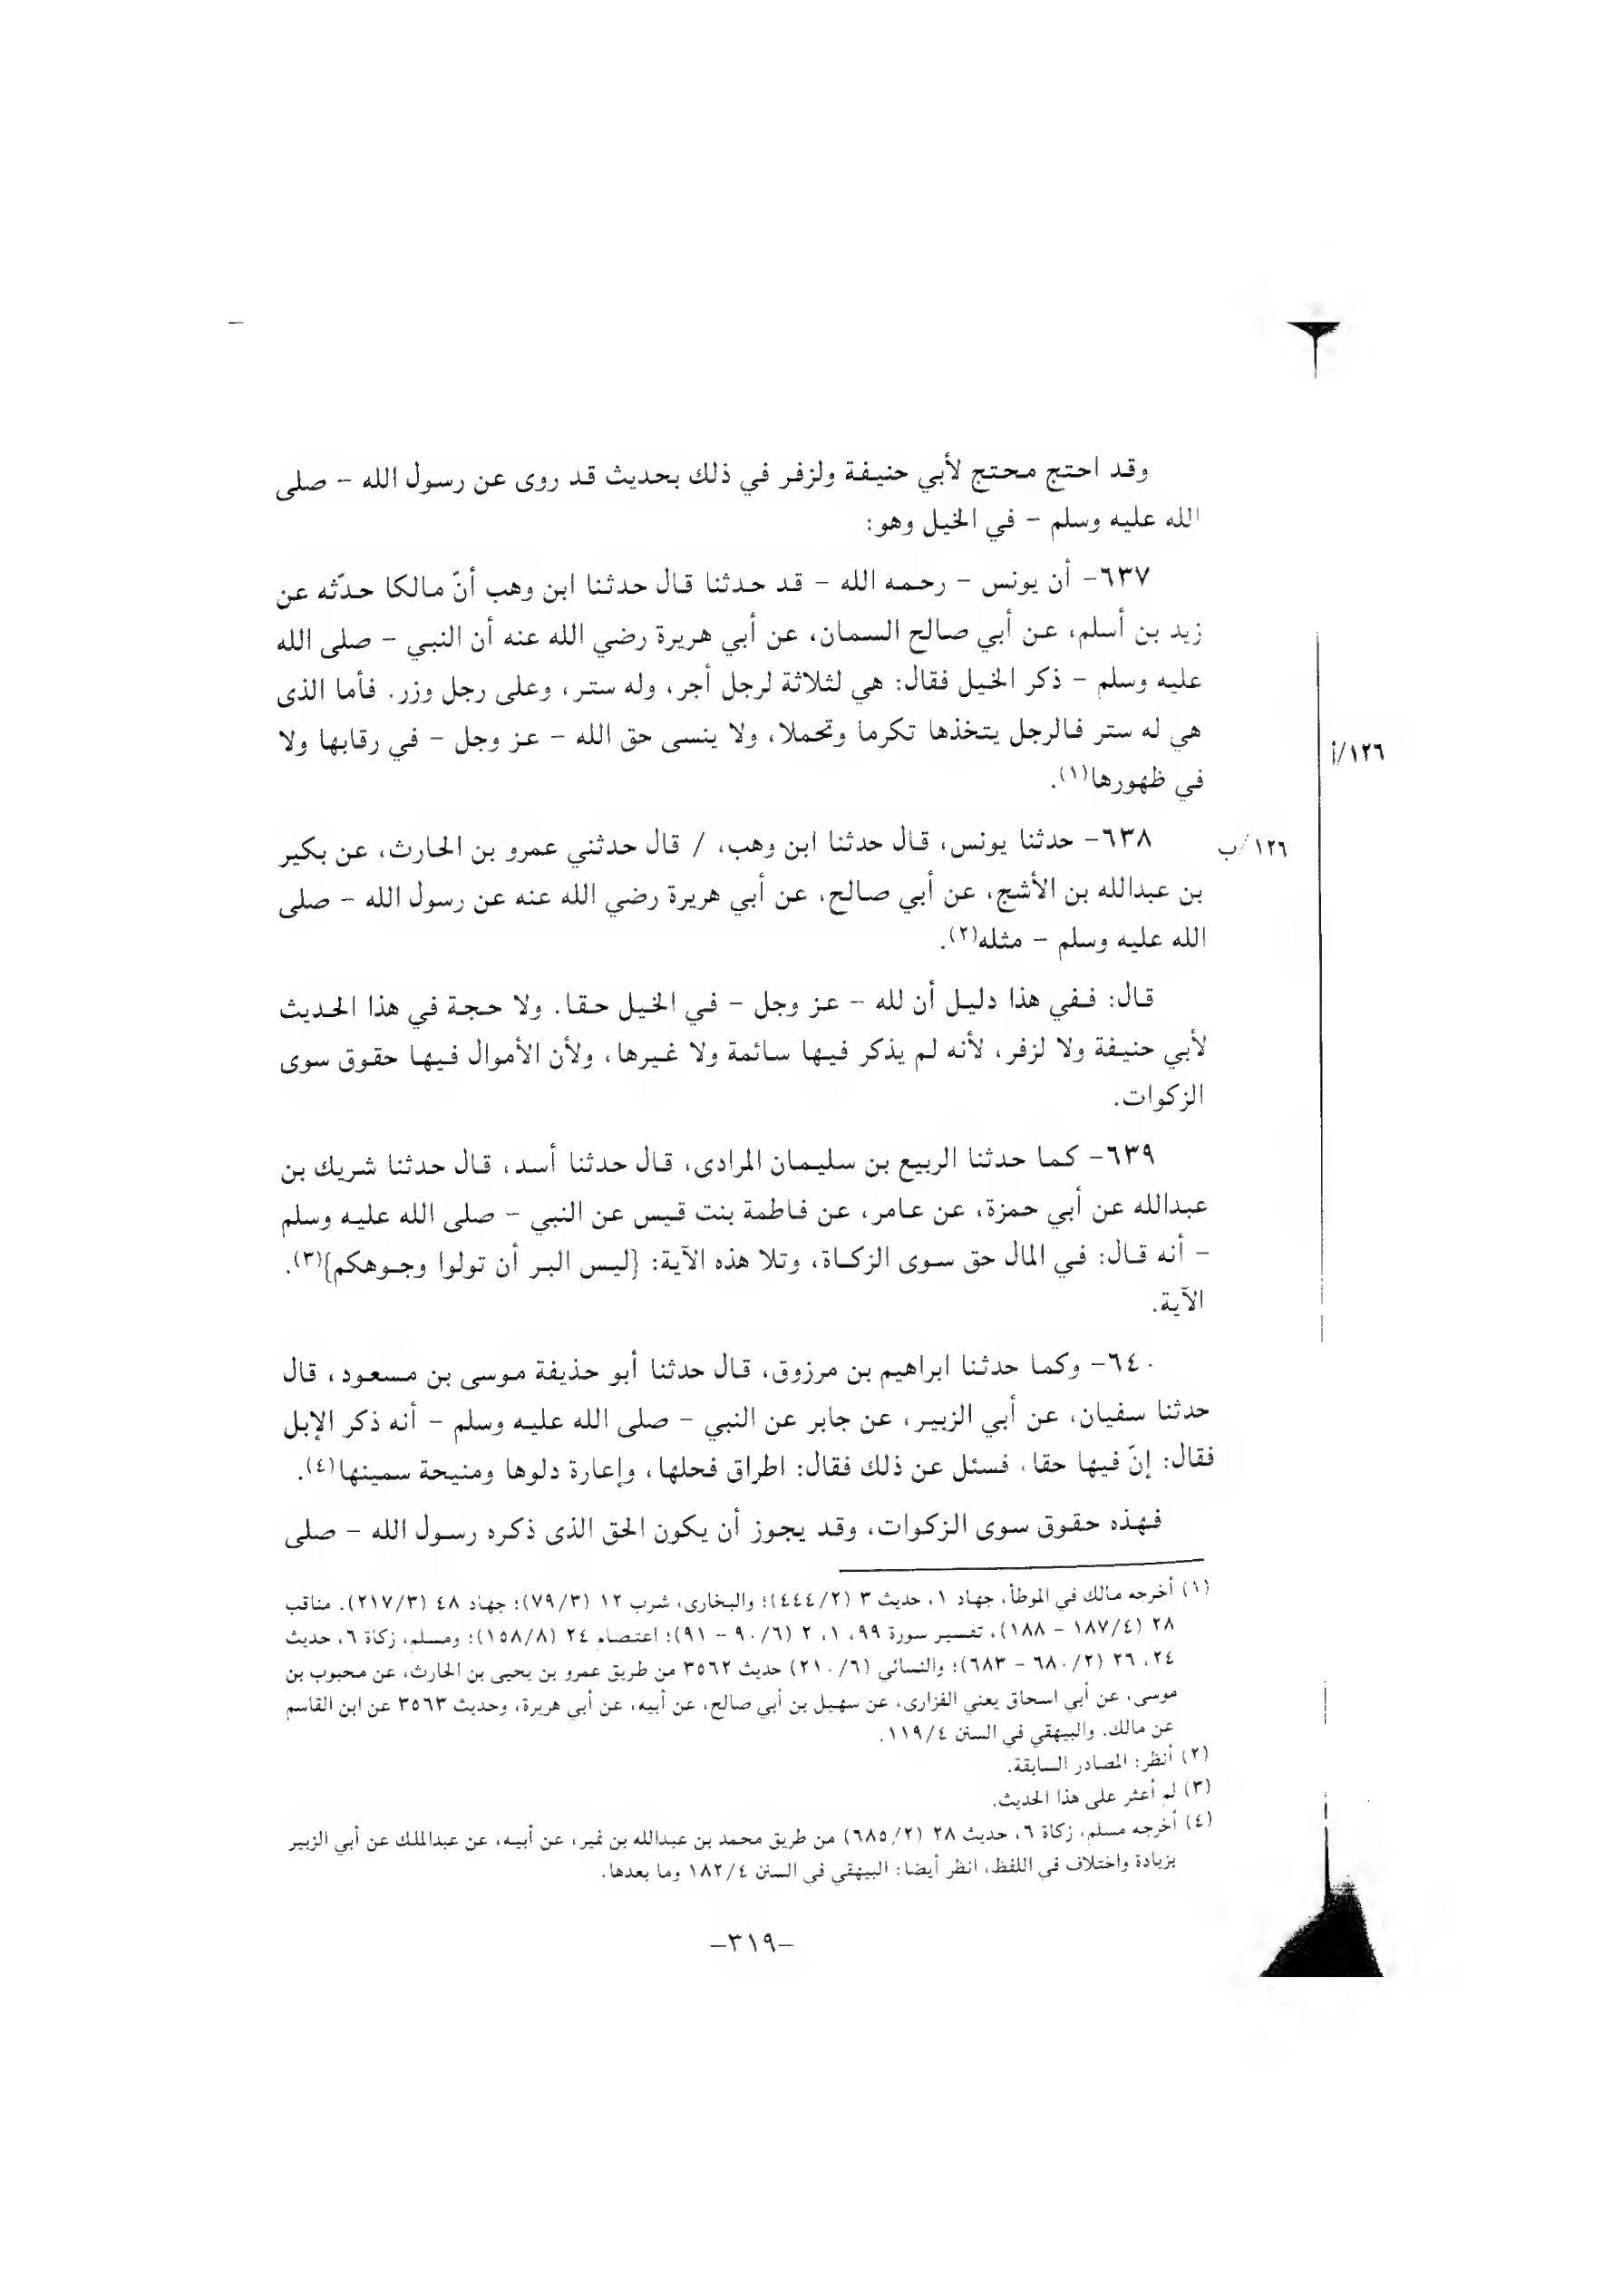 وقد احتج محتج لأبي حنيفة ولزفر في ذلك بحديث قد روى عن رسول الله – صلى
الله عليه وسلم – في الخيل وهو:
٦٣٧– أن يونس – رحمه الله – قد حدثنا قال حدثنا ابن وهب أنّ مالكا حدّثه عن
زيد بن أسلم، عن أبي صالح السمان، عن أبي هريرة رضي الله عنه أن النبي – صلى الله
عليه وسلم – ذكر الخيل فقال: هي لثلاثة لرجل أجر، وله ستر، وعلى رجل وزر. فأما الذى
هي له ستر فالرجل يتخذها تكرما وتحملا، ولا ينسى حق الله – عز وجل – في رقابها ولا
١٢٦/أ
في ظهورها(١).
٦٣٨– حدثنا يونس، قال حدثنا ابن وهب، / قال حدثني عمرو بن الحارث، عن بكير
١٢٦/ب
بن عبدالله بن الأشج، عن أبي صالح، عن أبي هريرة رضي الله عنه عن رسول الله – صلى
الله عليه وسلم – مثله(٢).
قال: ففي هذا دليل أن لله – عز وجل – في الخيل حقا. ولا حجة في هذا الحديث
لأبي حنيفة ولا لزفر، لأنه لم يذكر فيها سائمة ولا غيرها، ولأن الأموال فيها حقوق سوى
الزكوات.
٦٣٩– كما حدثنا الربيع بن سليمان المرادى، قال حدثنا أسد، قال حدثنا شريك بن
عبدالله عن أبي حمزة، عن عامر، عن فاطمة بنت قيس عن النبي – صلى الله عليه وسلم
– أنه قال: في المال حق سوى الزكاة، وتلا هذه الآية: {ليس البر أن تولوا وجوهكم}(٣).
الآية.
٦٤٠– وكما حدثنا ابراهيم بن مرزوق، قال حدثنا أبو حذيفة موسى بن مسعود، قال
حدثنا سفيان، عن أبي الزبير، عن جابر عن النبي – صلى الله عليه وسلم – أنه ذكر الإبل
فقال: إنّ فيها حقا، فسئل عن ذلك فقال: اطراق فحلها، وإعارة دلوها ومنيحة سمينها(٤).
فهذه حقوق سوى الزكوات، وقد يجوز أن يكون الحق الذى ذكره رسول الله – صلى
(١) أخرجه مالك في الموطأ، جهاد ١، حديث ٣ (٤٤٤/٢)؛ والبخارى، شرب ١٢ (٧٩/٣)؛ جهاد ٤٨ (٢١٧/٣). مناقب
٢٨ (١٨٧/٤ – ١٨٨)، تفسير سورة ٩٩، ١، ٢ (٩٠/٦ – ٩١)؛ اعتصام ٢٤ (١٥٨/٨)؛ ومسلم، زكاة ٦، حديث
٢٤، ٢٦ (٦٨٠/٢ – ٦٨٣)؛ والنسائي (٢١٠/٦) حديث ٣٥٦٢ من طريق عمرو بن يحيى بن الحارث، عن محبوب بن
موسى، عن أبي اسحاق يعني الفزارى، عن سهيل بن أبي صالح، عن أبيه، عن أبي هريرة، وحديث ٣٥٦٣ عن ابن القاسم
عن مالك. والبيهقي في السنن ١١٩/٤.
(٢) أنظر: المصادر السابقة.
(٣) لم أعثر على هذا الحديث.
(٤) أخرجه مسلم، زكاة ٦، حديث ٢٨ (٦٨٥/٢) من طريق محمد بن عبدالله بن نمير، عن أبيه، عن عبدالملك عن أبي الزبير
بزيادة واختلاف في اللفظ، انظر أيضا: البيهقي في السنن ١٨٢/٤ وما بعدها.
–٣١٩–